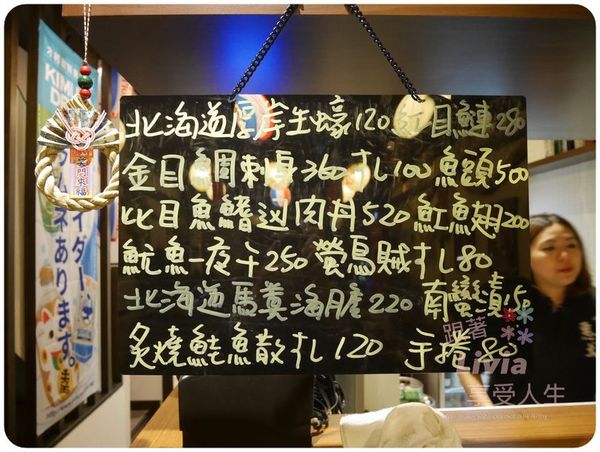 北海道厚岸生蠔120 紅目鰱280
金目鯛刺身360 丼100 魚頭500
比目魚鰭边肉丼520 魟魚翅200
魷魚一夜干250 螢烏賊 80
北海道馬糞海膽220 南蠻漬150
炙燒鮭魚散 120 手捲80
跟著
Livia
享受人生
KIM
イダー、
ネあります。